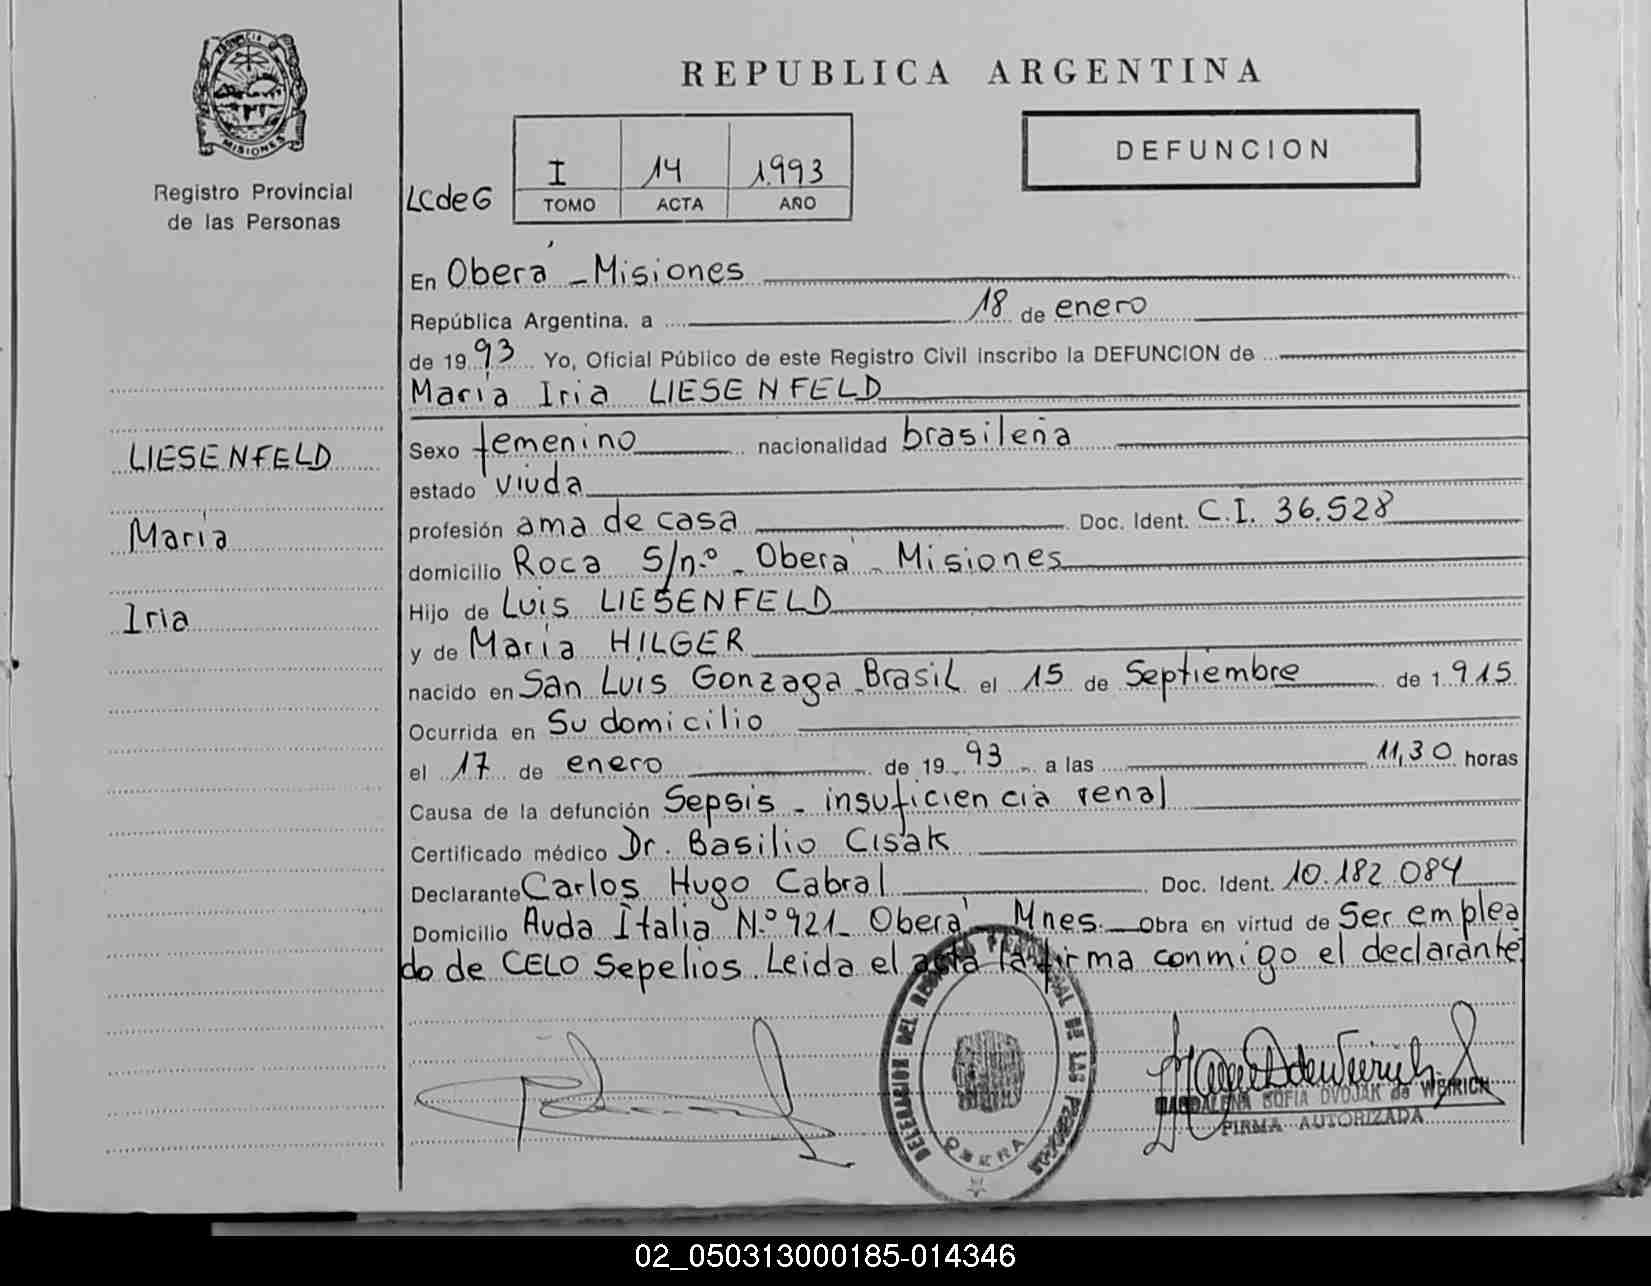 PROVINCIA D
MISIONES
Registro Provincial
de las Personas
LIESENFELD
María
Iria
REPUBLICA ARGENTINA
DEFUNCION
LCdeG
I 14 1.993
TOMO ACTA AÑO
En Oberá - Misiones
República Argentina, a 18 de enero
de 1993 Yo, Oficial Público de este Registro Civil inscribo la DEFUNCION de
María Iria LIESENFELD
Sexo femenino nacionalidad brasileña
estado viuda
profesión ama de casa Doc. Ident. C.I. 36.528
domicilio Roca S/n.º - Oberá - Misiones
Hijo de Luis LIESENFELD
y de María HILGER
nacido en San Luis Gonzaga - Brasil el 15 de Septiembre de 1.915
Ocurrida en Su domicilio
el 17 de enero de 1993 a las 11,30 horas
Causa de la defunción Sepsis - insuficiencia renal
Certificado médico Dr. Basilio Cisak
Declarante Carlos Hugo Cabral Doc. Ident. 10.182.084
Domicilio Avda Italia N.º 921 - Oberá - Mnes. Obra en virtud de Ser emplea
do de CELO Sepelios. Leida el acta la firma conmigo el declarante
DELEGACION DEL REGISTRO PROVINCIAL DE LAS PERSONAS
OBERA
MAGDALENA SOFIA DVOJAK de WEIRICH
FIRMA AUTORIZADA
02_050313000185-014346